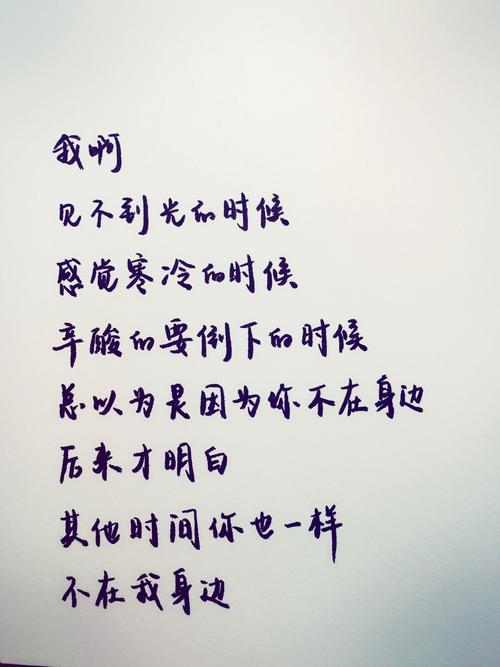 我啊
见不到光的时候
感觉寒冷的时候
辛酸的要倒下的时候
总以为是因为你不在身边
后来才明白
其他时间你也一样
不在我身边